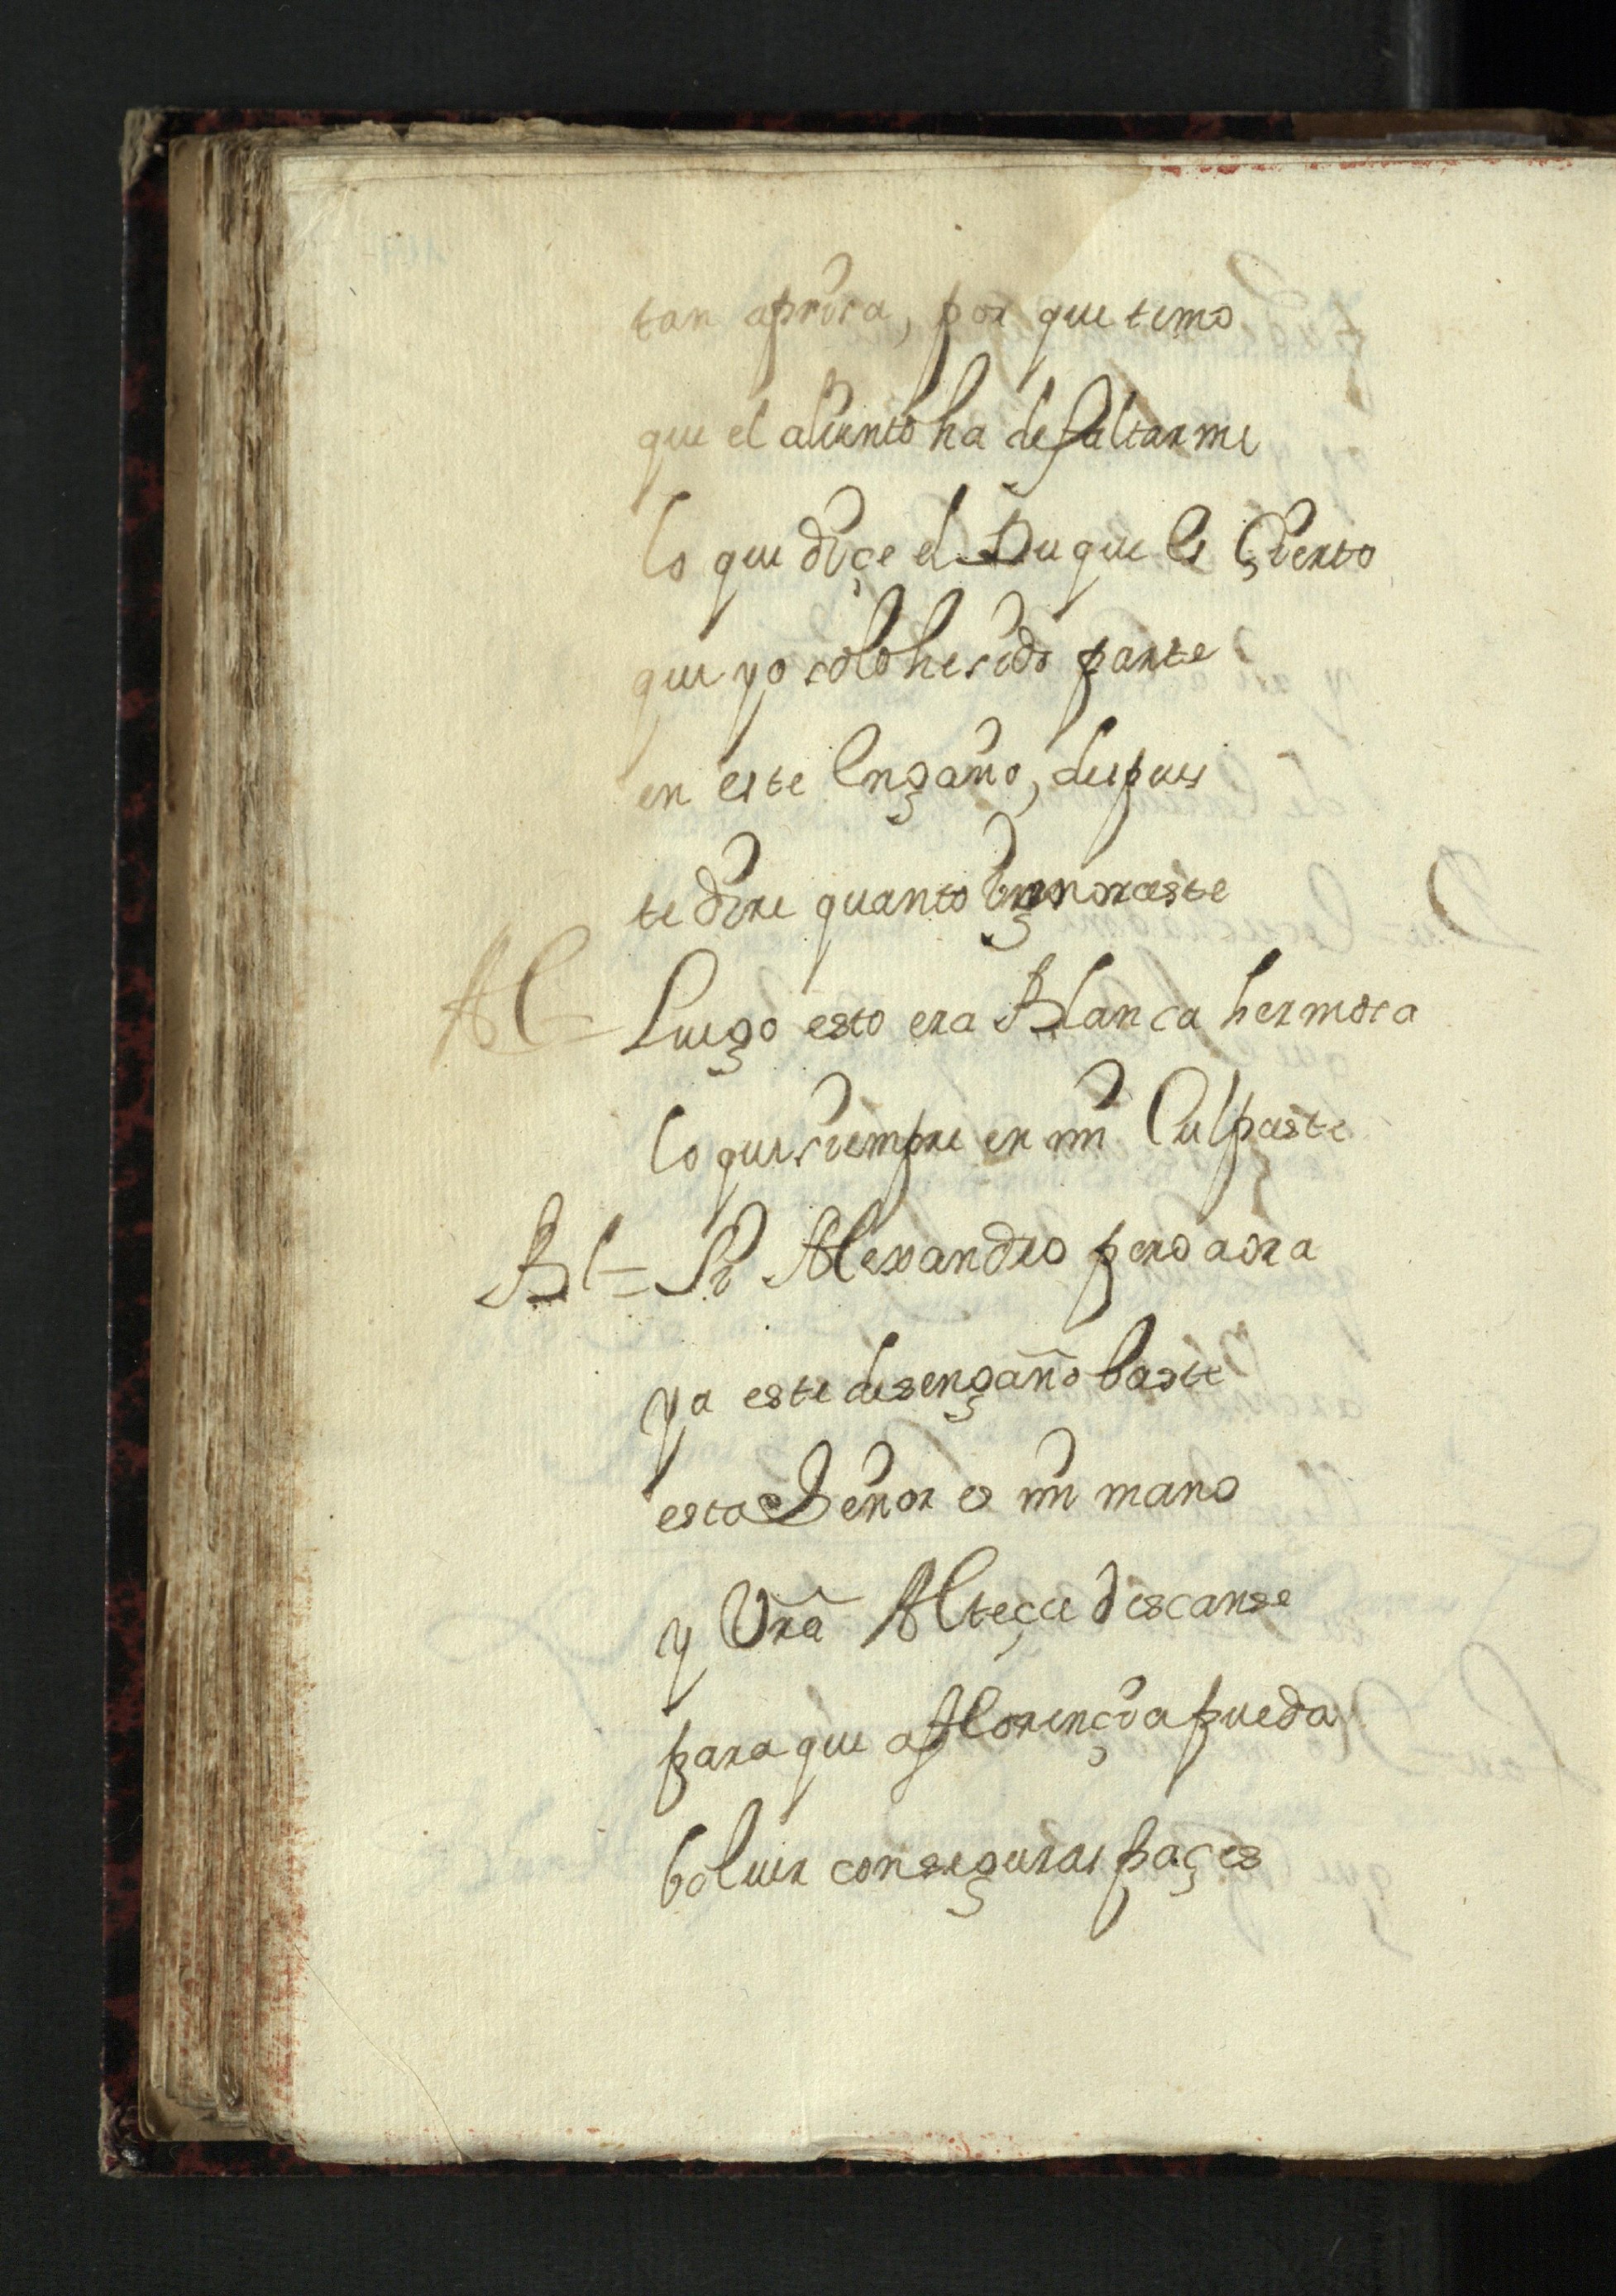 tan aprisa, por que temo
que el aliento ha de faltarme
lo que diçe el Duque es Çierto
que yo solo he sido parte
en este engaño, despues
te dire quanto ignoraste
Al= Luego esto era Blanca hermosa
lo que siempre en mi Culpaste
Bl= Si Alexandro pero aora
ya este desengaño baste
esta Señor es mi mano
y Vrã Alteça descanse
para que a florençia pueda
boluer con seguras paçes